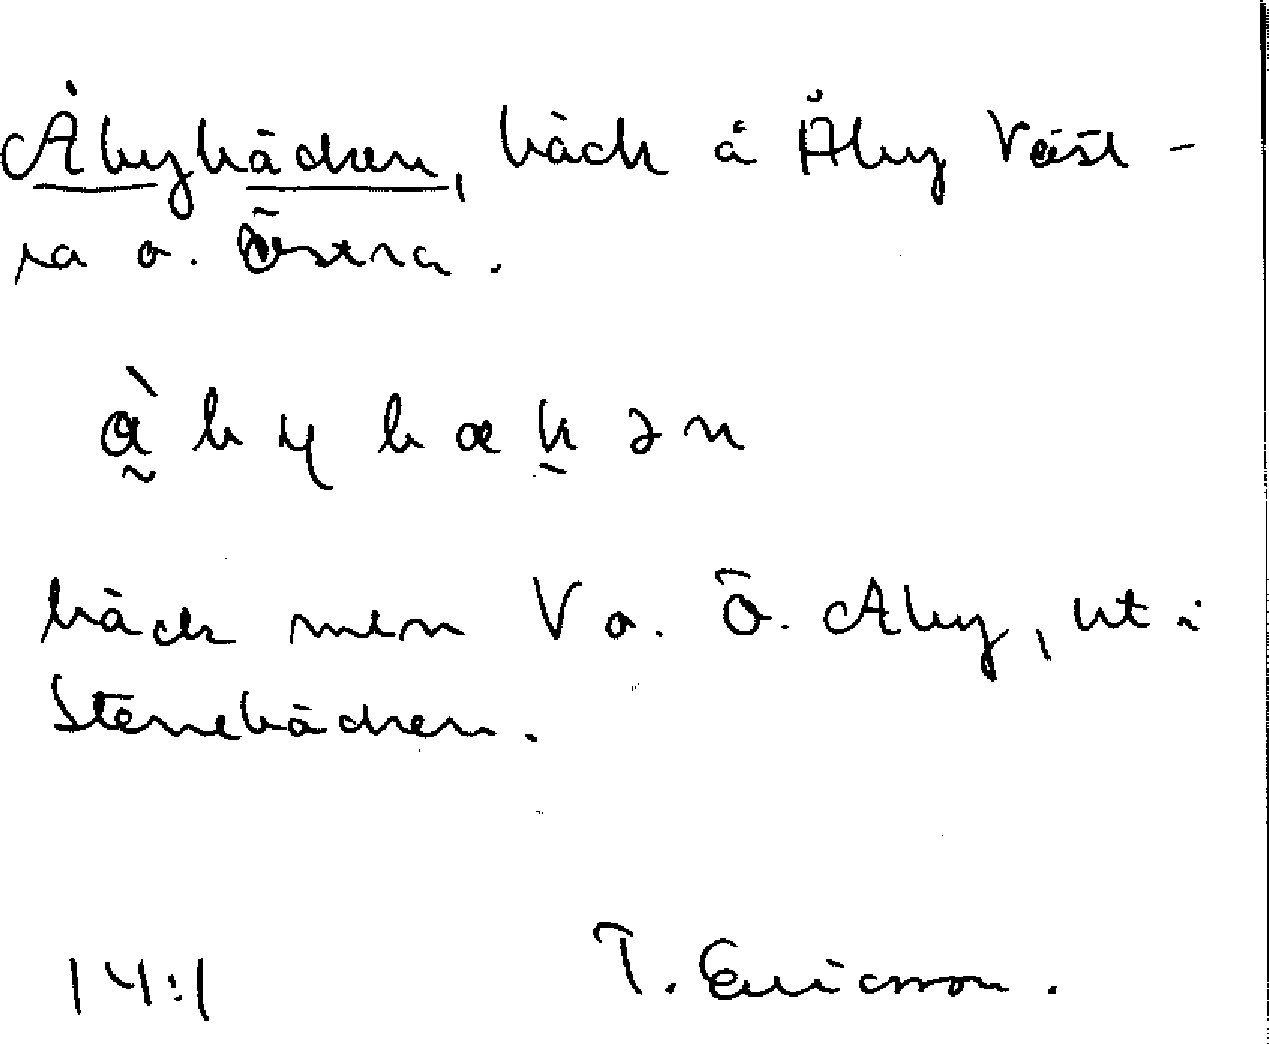 Åbybäcken, bäck å Åby Väst-
ra o. Östra.
å̀bybækən
bäck mm V o. Ö. Åby, ut i
Stenebäcken.
14:1 T. Ericsson.